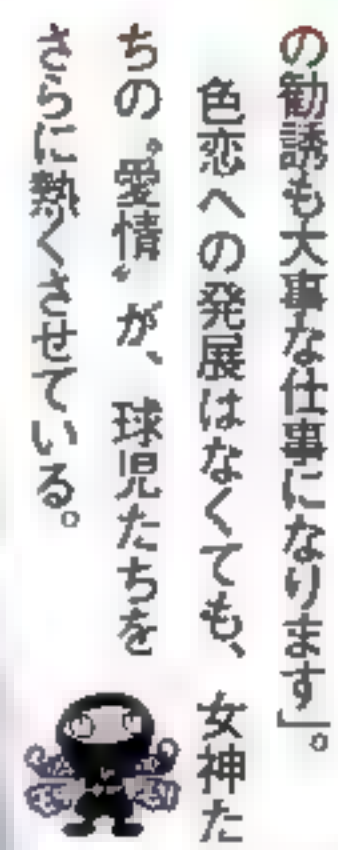 の勧誘も大事な仕事になります」。
色恋への発展はなくても、女神た
ちの〝愛情〟が、球児たちを
さらに熱くさせている。